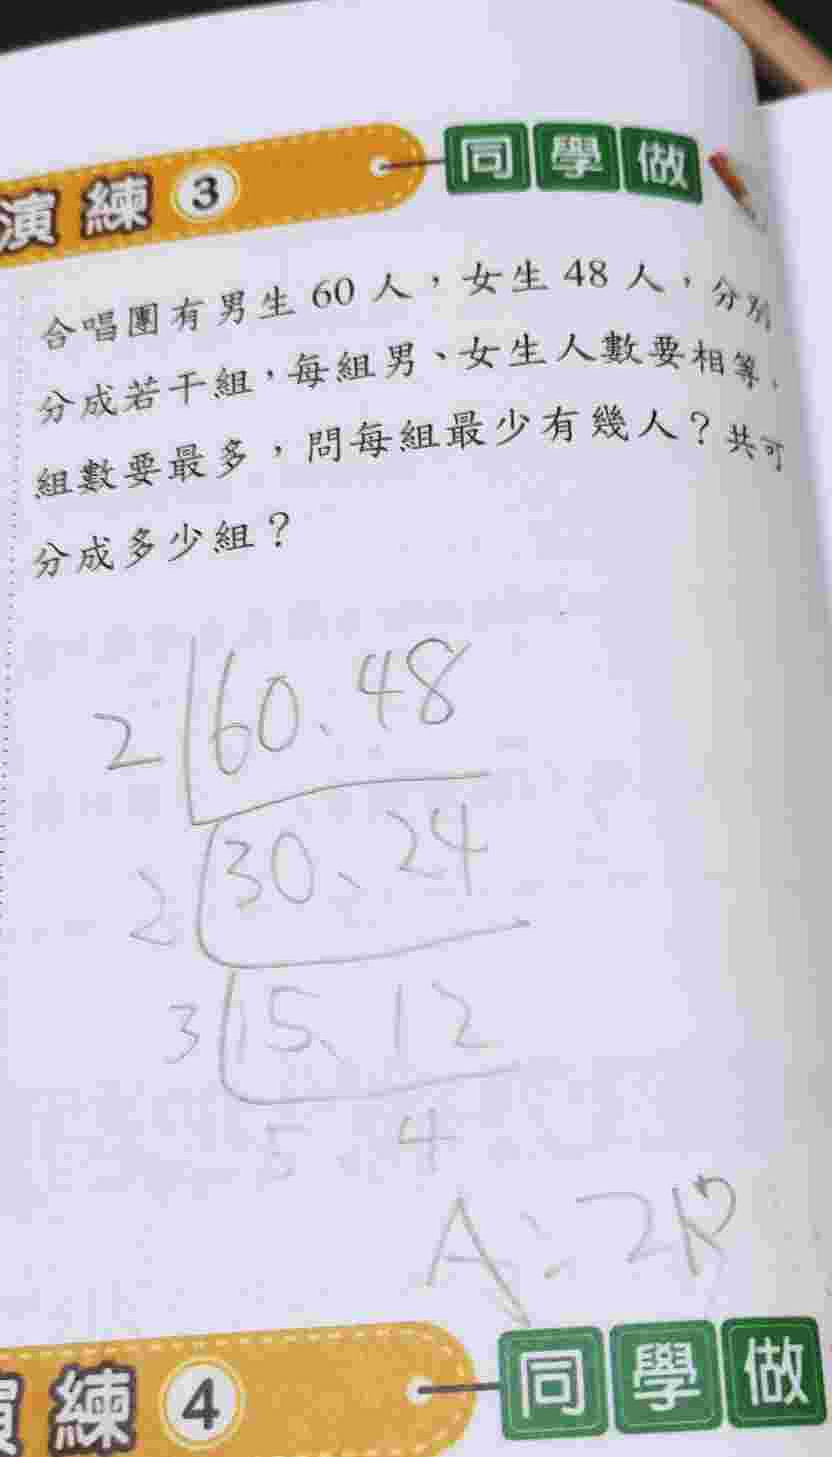 演練 3 同學做
合唱團有男生 60 人，女生 48 人，分別
分成若干組，每組男、女生人數要相等，
組數要最多，問每組最少有幾人？共可
分成多少組？
2 60、48
2 30、24
3 15、12
5、4
A:
練 4 同學做